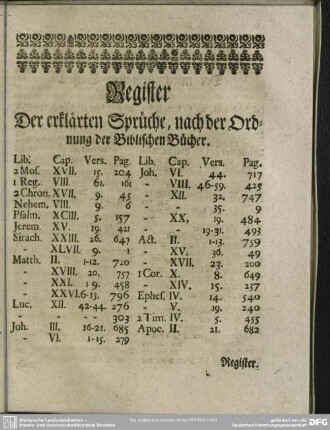 Register
Der erklärten Sprüche, nach der Ord-
nung der Biblischen Bücher.
Lib. Cap. Vers. Pag.
2 Mos. XVII. 15. 204
1 Reg. VIII. 61. 161
2 Chron. XVII. 9. 45
Nehem. VIII. 9. 6
Psalm. XCIII. 5. 157
Jerem. XV. 19. 421
Sirach. XXIII. 26. 647
- XLVII. 9. 1
Matth. II. 1-12. 720
- XVIII. 20. 757
- XXI. 1 9. 458
- XXVI. 6-13. 796
Luc. XII. 42-44. 276
- - - - 303
Joh. III. 16-21. 685
- VI. 1-15. 279
Lib. Cap. Vers. Pag.
Joh. VI. 44. 717
- VIII. 46-59. 425
- XII. 32. 747
- - 35. 9
- XX. 19. 484
- - 19-31. 493
Act. II. 1-13. 759
- XV. 36. 49
- XVII. 23. 200
1 Cor. X. 8. 649
- XIV. 15. 237
Ephes. IV. 14. 540
- V. 19. 240
2 Tim. IV. 5. 455
Apoc. II. 21. 682
Register.